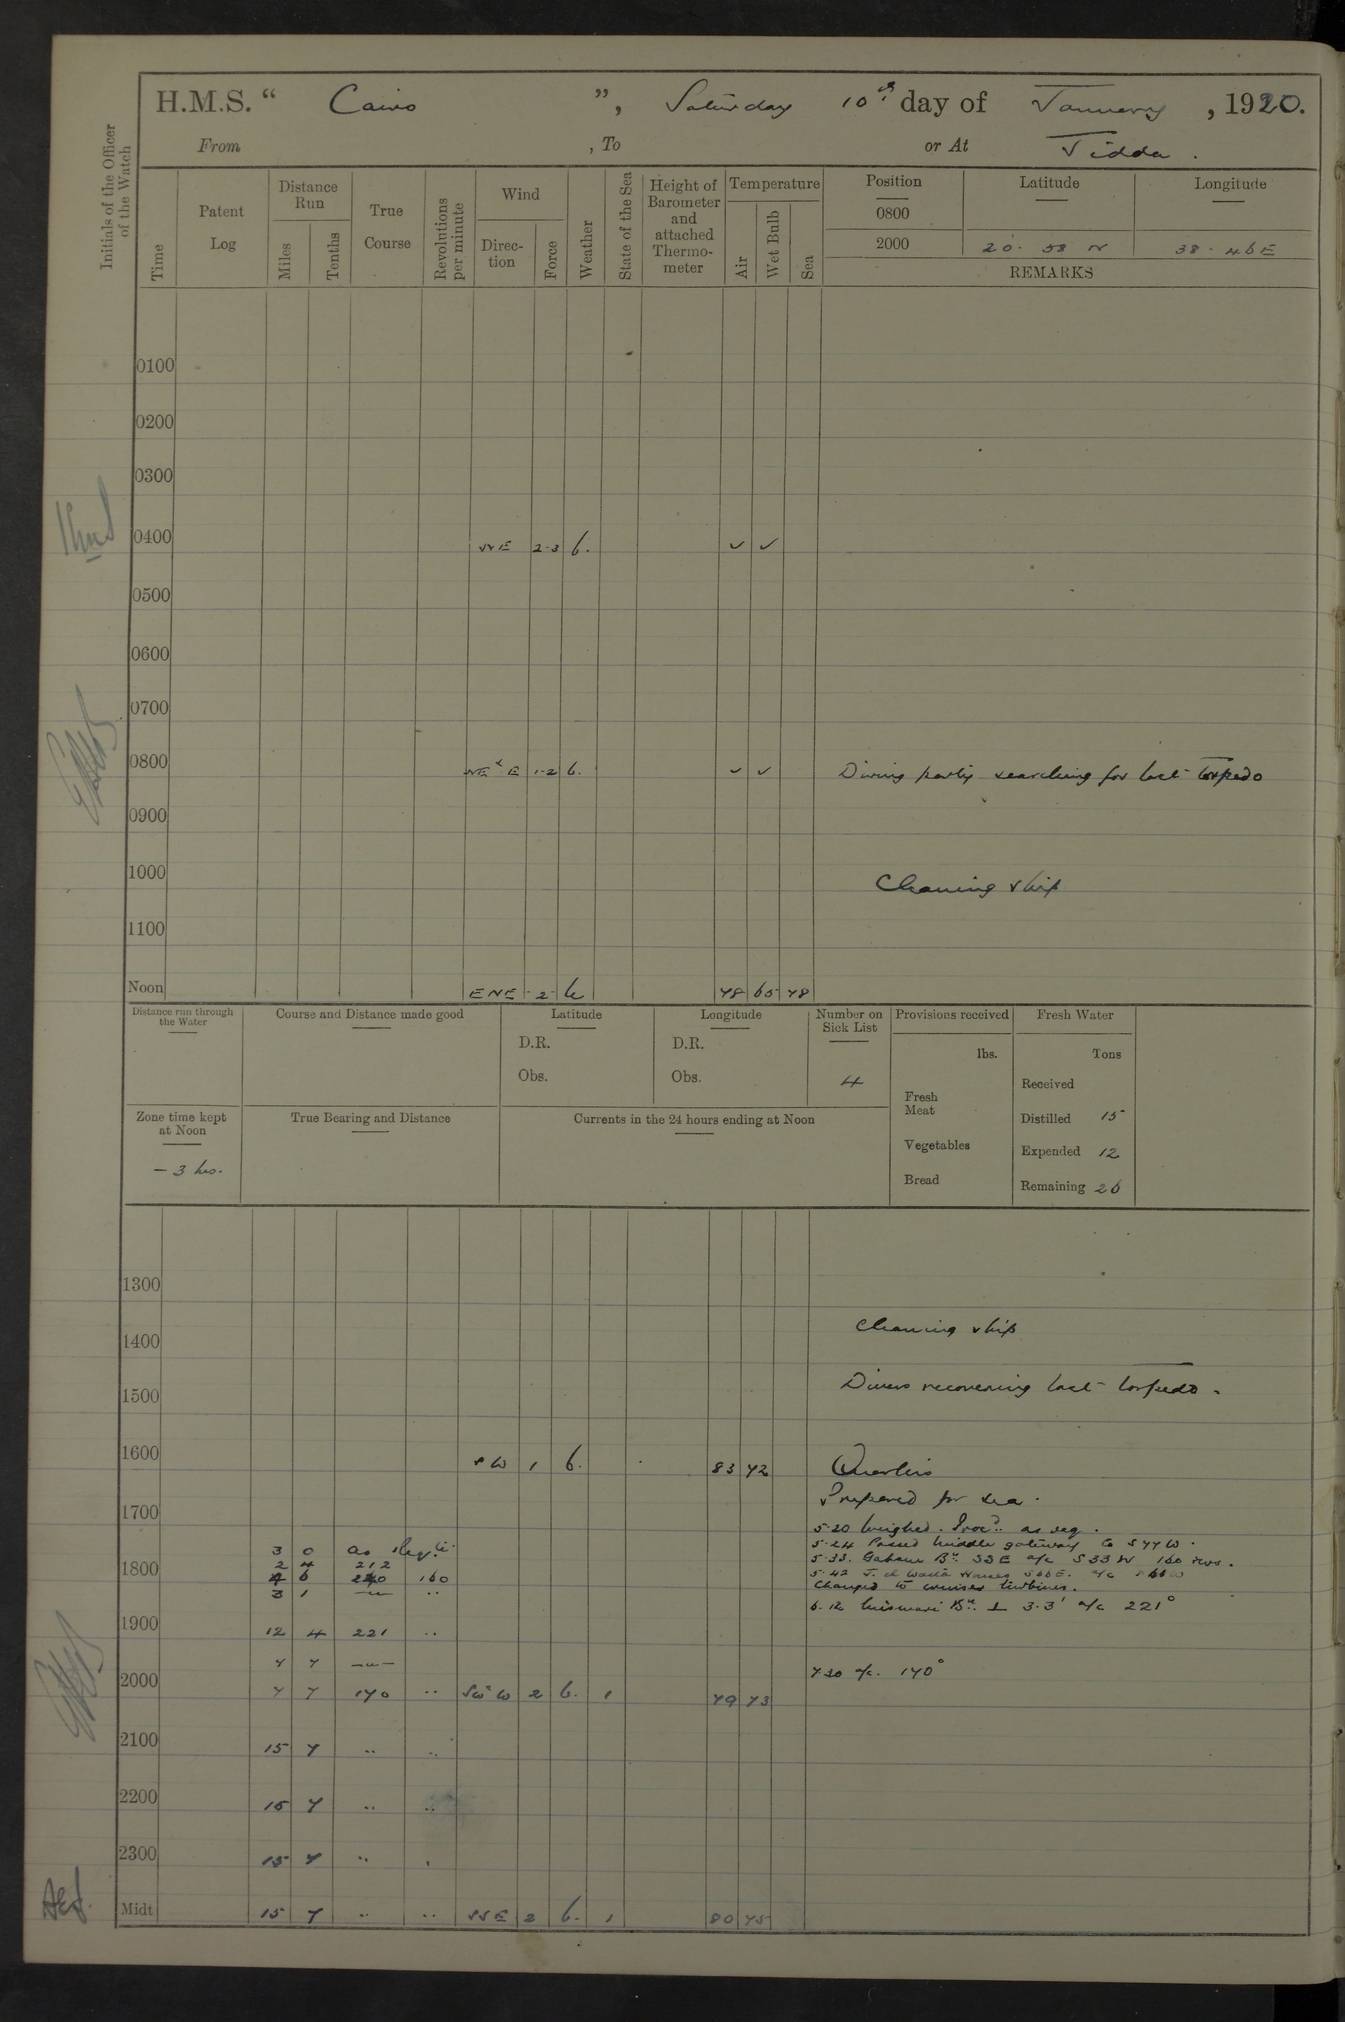 H.M.S. “ Cairo ”, Saturday 10th day of January, 1920.
From , To or At Jidda.
Initials of the Officer of the Watch
Time
Patent Log
Distance Run
Miles
Tenths
True Course
Revolutions per minute
Wind
Direction
Force
Weather
State of the Sea
Height of Barometer and attached Thermometer
Temperature
Air
Wet Bulb
Sea
Position Latitude Longitude
0800
2000 20. 58 N 38. 46 E
REMARKS
0100
0200
0300
0400 NE 2-3 b. ✓ ✓
0500
0600
0700
0800 NE x E 1-2 b. ✓ ✓ Diving party searching for lost Torpedo
0900
1000 Cleaning ship
1100
Noon ENE 2 b 78 65 78
Distance run through the Water
Course and Distance made good
Latitude
D.R.
Obs.
Longitude
D.R.
Obs.
Number on Sick List
4
Provisions received
lbs.
Fresh Meat
Vegetables
Bread
Fresh Water
Tons
Received
Distilled 15
Expended 12
Remaining 26
Zone time kept at Noon
- 3 hrs.
True Bearing and Distance
Currents in the 24 hours ending at Noon
1300
Cleaning ship
1400
Divers recovering lost torpedo.
1500
1600 SW 1 b. 83 72 Quarters
Prepared for sea.
1700
5-20 Weighed. Procd. as req.
3 0 as Req. 5-24 Passed middle gateway Co S 77 W.
2 4 212 5-33. Gaham Bn. 33 E a/c S 33 W 160 revs.
1800 6 160 5-42
3 1 Changed to cruiser turbines.
6.12 Bn. ⊥ 3.3' a/c 221°
1900 12 4 221 ..
7 7 —"— 7 30 a/c. 170°
2000 7 7 170 .. SW x W 2 b. 1 79 73
2100 15 7 .. ..
2200 15 7 .. ..
2300 15 7 .. .
Midt 15 7 .. .. SSE 2 b. 1 80 75